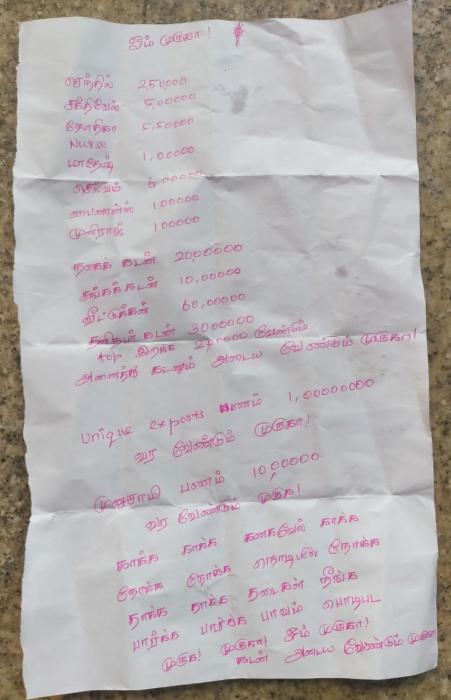 ஓம் முருகா!
செந்தில் 250000
சக்திவேல் 5,00000
ஜோதிகா 5,50000
Nurse
மாதேஷ் 1,00000
செல்வம் 600000
பைனான்ஸ் 100000
முனிராஜ் 100000
நகைக் கடன் 20,00000
சங்கக்கடன் 10,00000
வீட்டுக்கடன் 60,00000
தனிநபர் கடன் 3000000
top இறக்க 200000 வேண்டும்
அனைத்து கடனும் அடைய வேண்டும் முருகா!
unique exports பணம் 1,00000000
வர வேண்டும் முருகா!
பணம் 10,00000
வர வேண்டும் முருகா!
காக்க காக்க கனகவேல் காக்க
நோக்க நோக்க நொடியில் நோக்க
தாக்க தாக்க தடைகள் நீங்க
பார்க்க பார்க்க பாவம் பொடிபட
முருகா! முருகா! ஓம் முருகா!
கடன் அடைய வேண்டும் முருகா